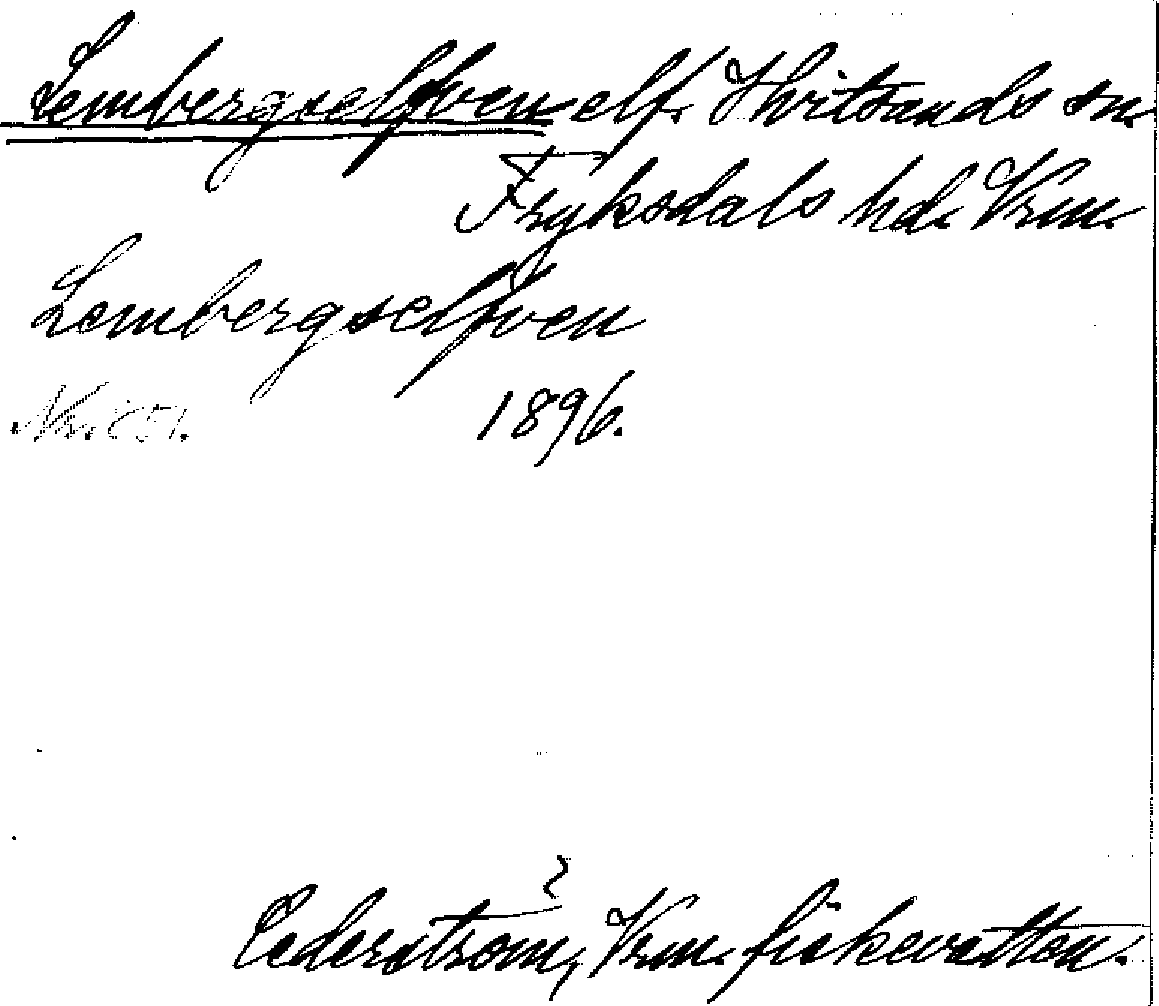 Lembergselfven elf. Hvitsands sn.
Fryksdals hd. Vrm.
Lembergselfven
Nr. 851. 1896.
Cederström, Vrm. fiskevatten.